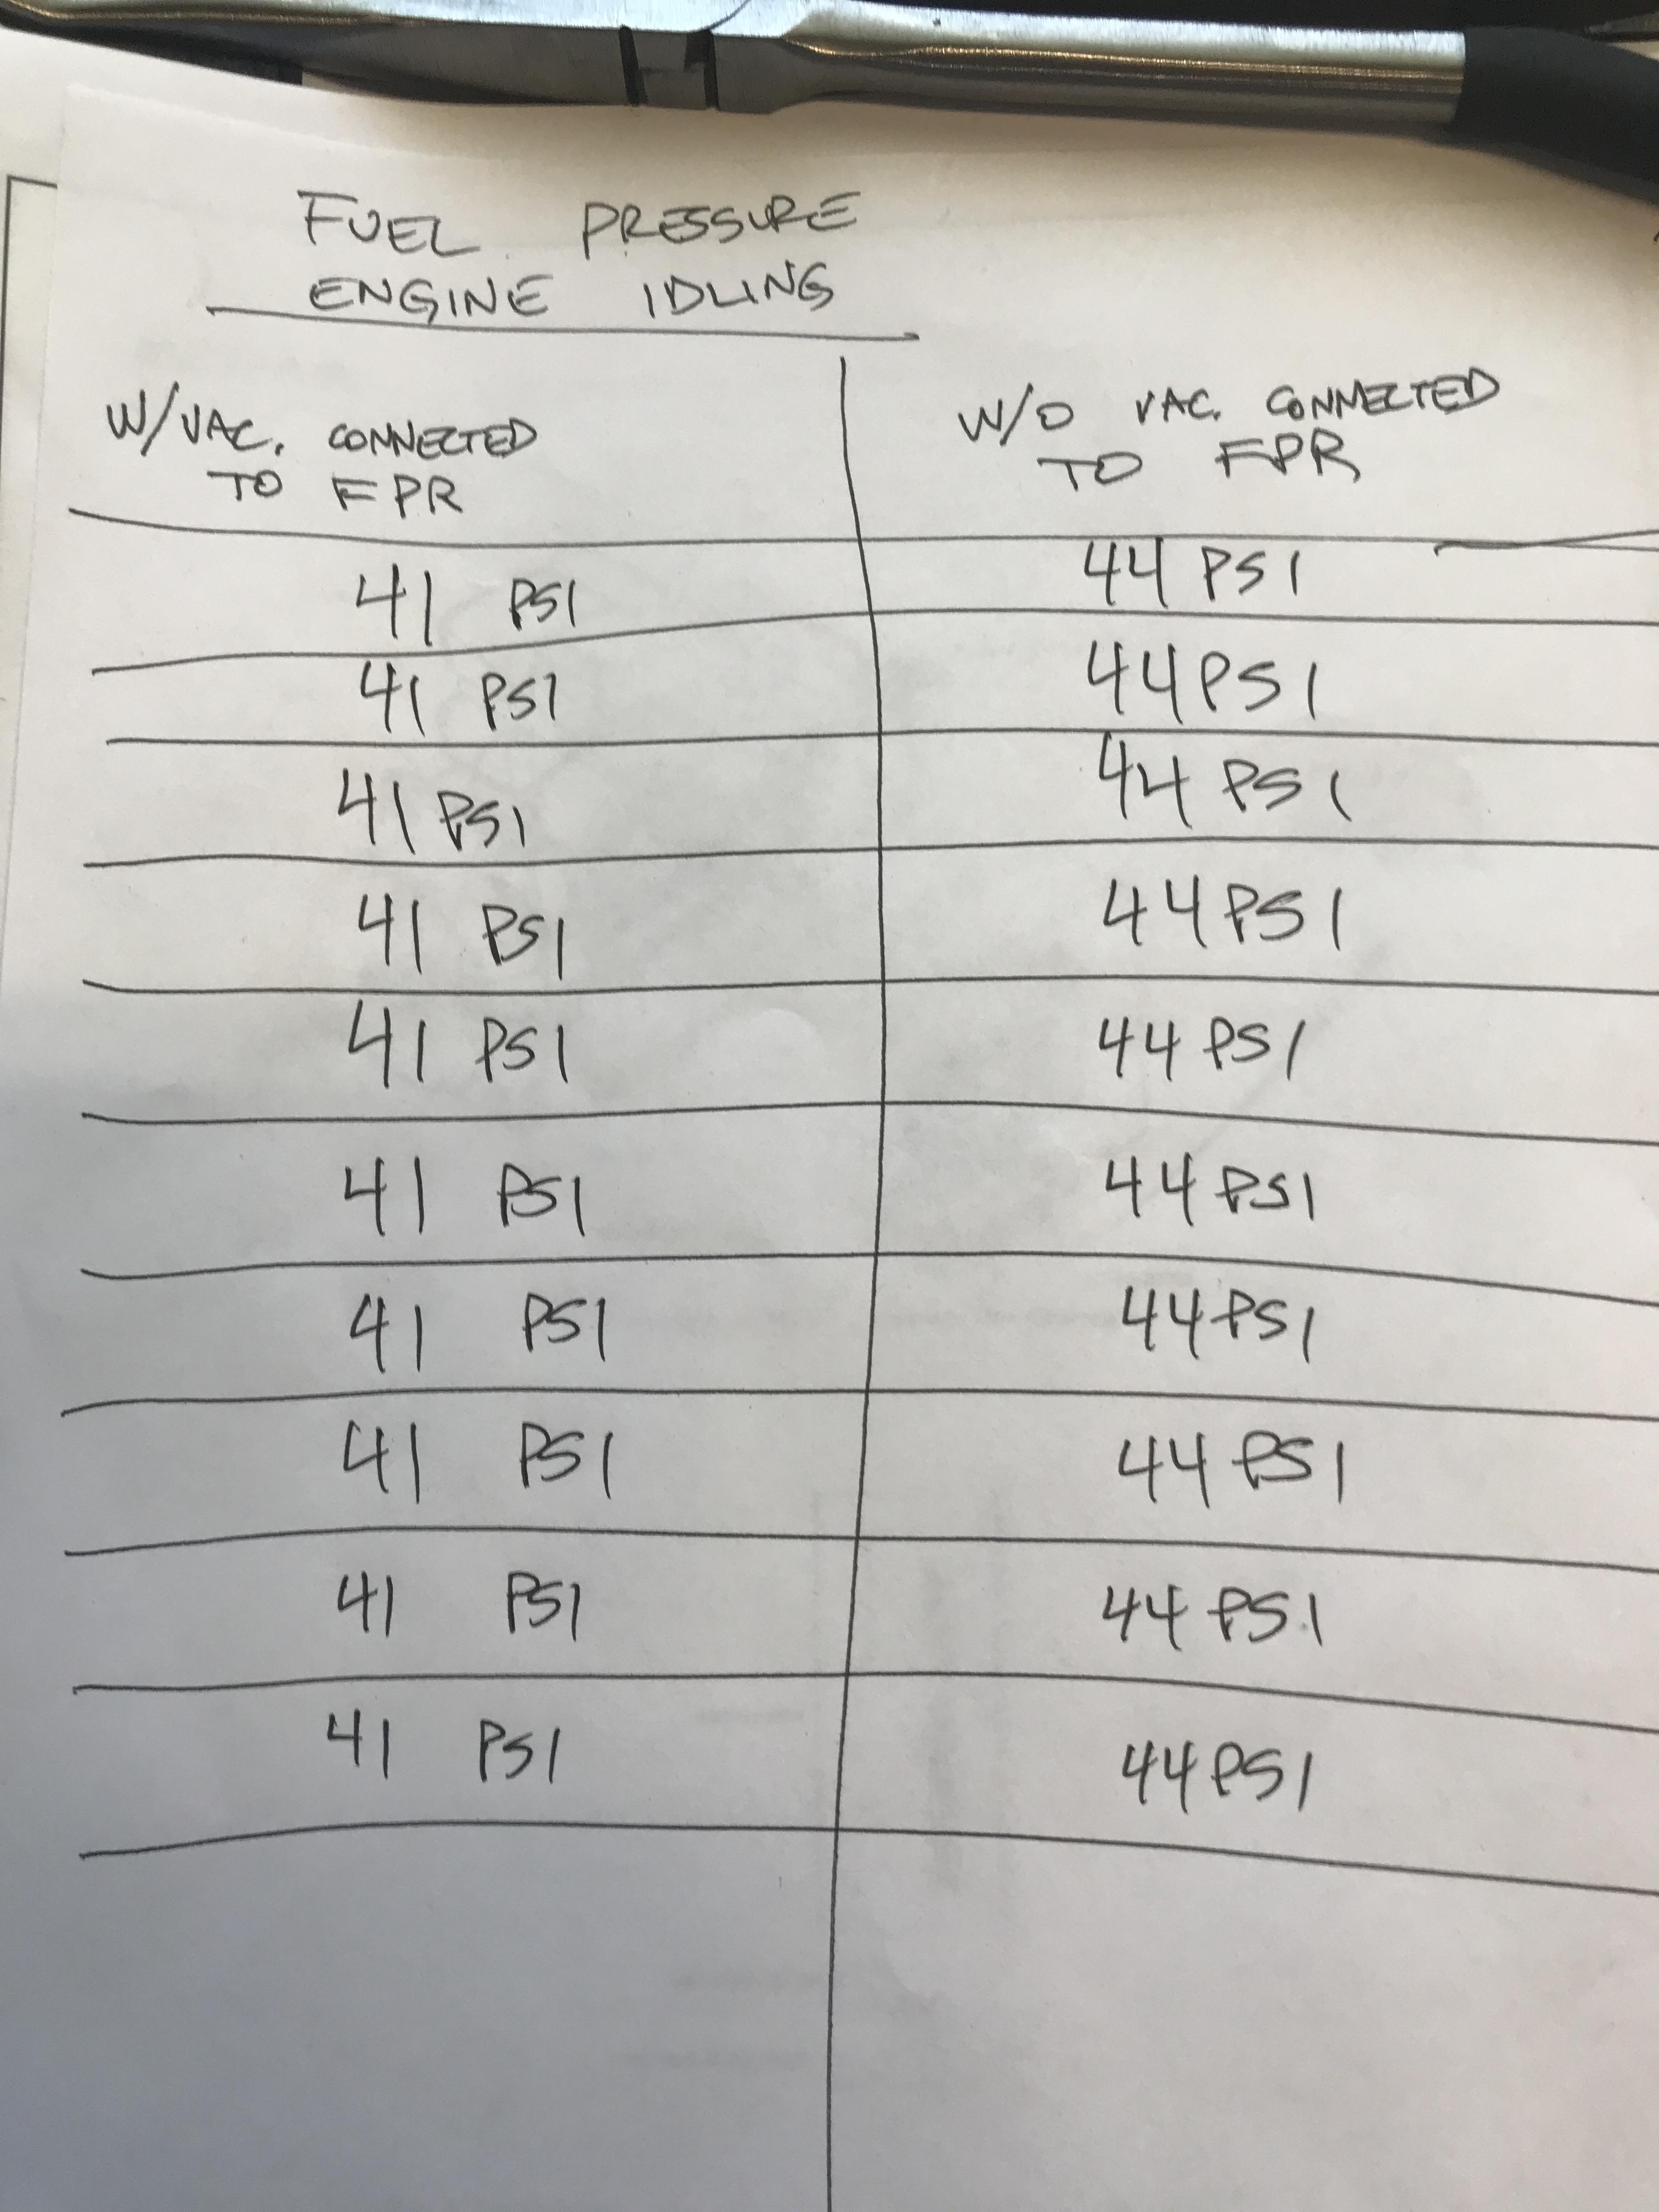 FUEL PRESSURE
ENGINE IDLING
W/VAC. CONNECTED
TO FPR
W/O VAC. CONNECTED
TO FPR
41 PSI
44 PSI
41 PSI
44 PSI
41 PSI
44 PSI
41 PSI
44 PSI
41 PSI
44 PSI
41 PSI
44 PSI
41 PSI
44 PSI
41 PSI
44 PSI
41 PSI
44 PSI
41 PSI
44 PSI